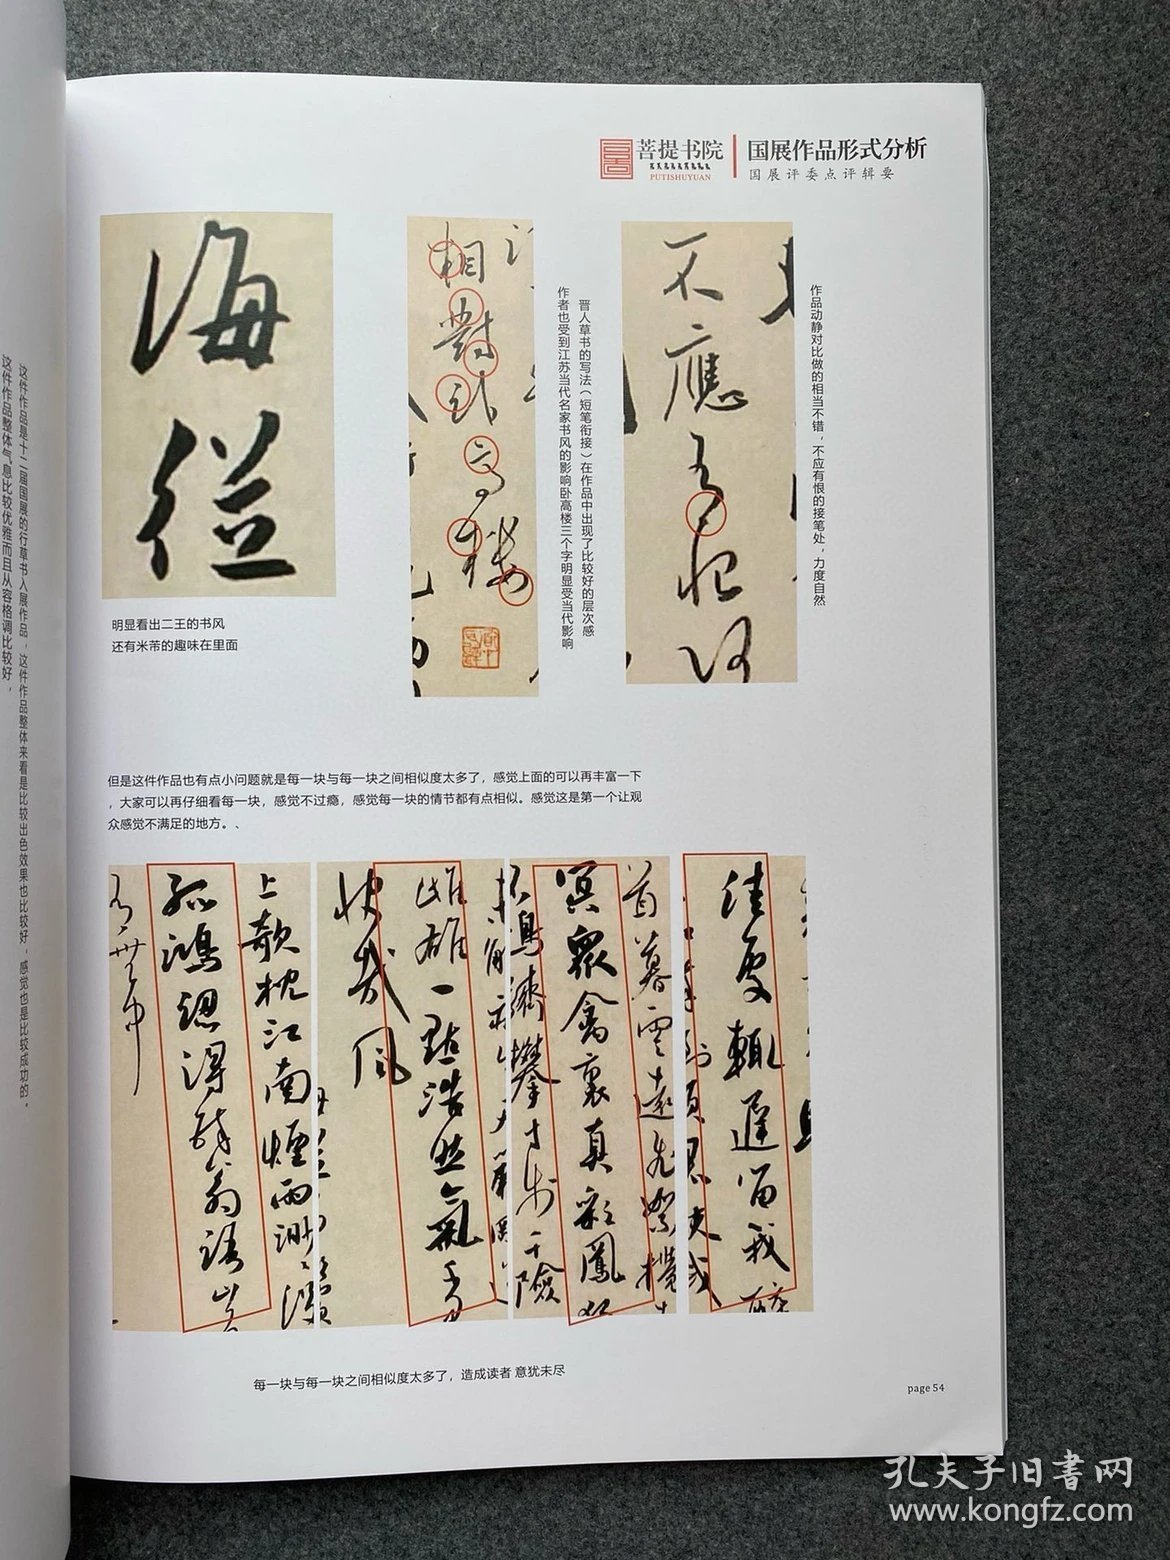 菩提书院
PUTISHUYUAN
国展作品形式分析
国展评委点评辑要
海
從
明显看出二王的书风
还有米芾的趣味在里面
相對卧高樓
晋人草书的写法（短笔衔接）在作品中出现了比较好的层次感
作者也受到江苏当代名家书风的影响卧高楼三个字明显受当代影响
不應有恨
作品动静对比做的相当不错，不应有恨的接笔处，力度自然
这件作品是十二届国展的行草书入展作品，这件作品整体来看是比较出色效果也比较好，感觉也是比较成功的。
这件作品整体气息比较优雅而且从容格调比较好，
但是这件作品也有点小问题就是每一块与每一块之间相似度太多了，感觉上面的可以再丰富一下
，大家可以再仔细看每一块，感觉不过瘾，感觉每一块的情节都有点相似。感觉这是第一个让观
众感觉不满足的地方。、
佳處輒遲留我醉
首暮雲遠
冥眾禽裏真彩鳳
雌雄一點浩然氣千
快哉風
上欹枕江南煙雨渺渺沒
孤鴻認得醉翁語山
有無中
每一块与每一块之间相似度太多了，造成读者 意犹未尽
page 54
孔夫子旧書网
www.kongfz.com